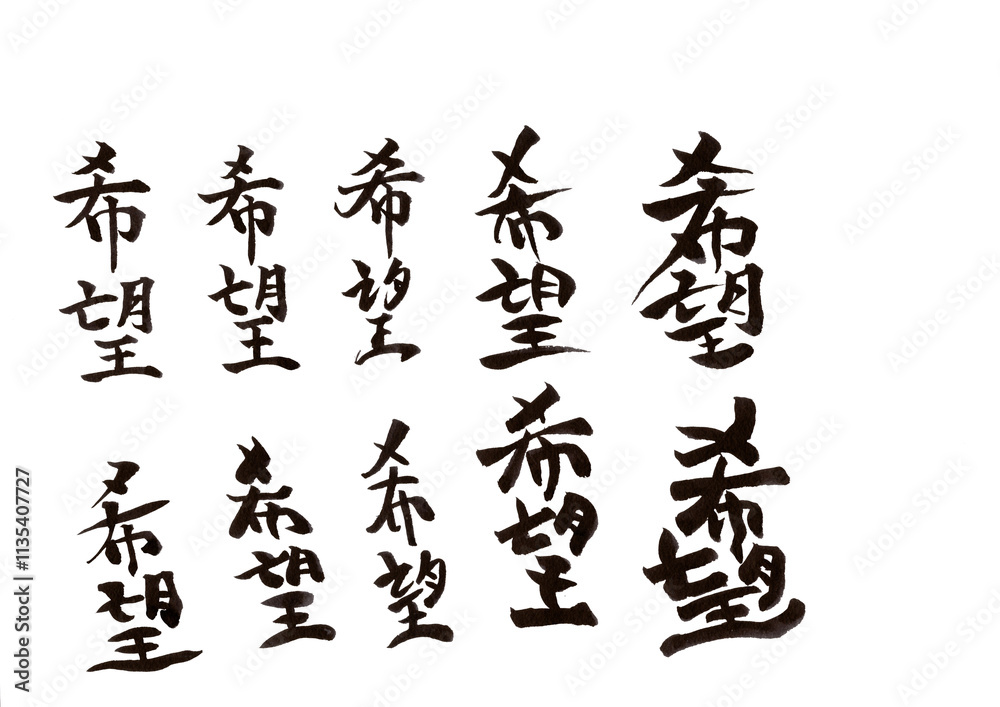 希望
希望
希望
希望
希望
希望
希望
希望
希望
希望
Adobe Stock | #1135407727